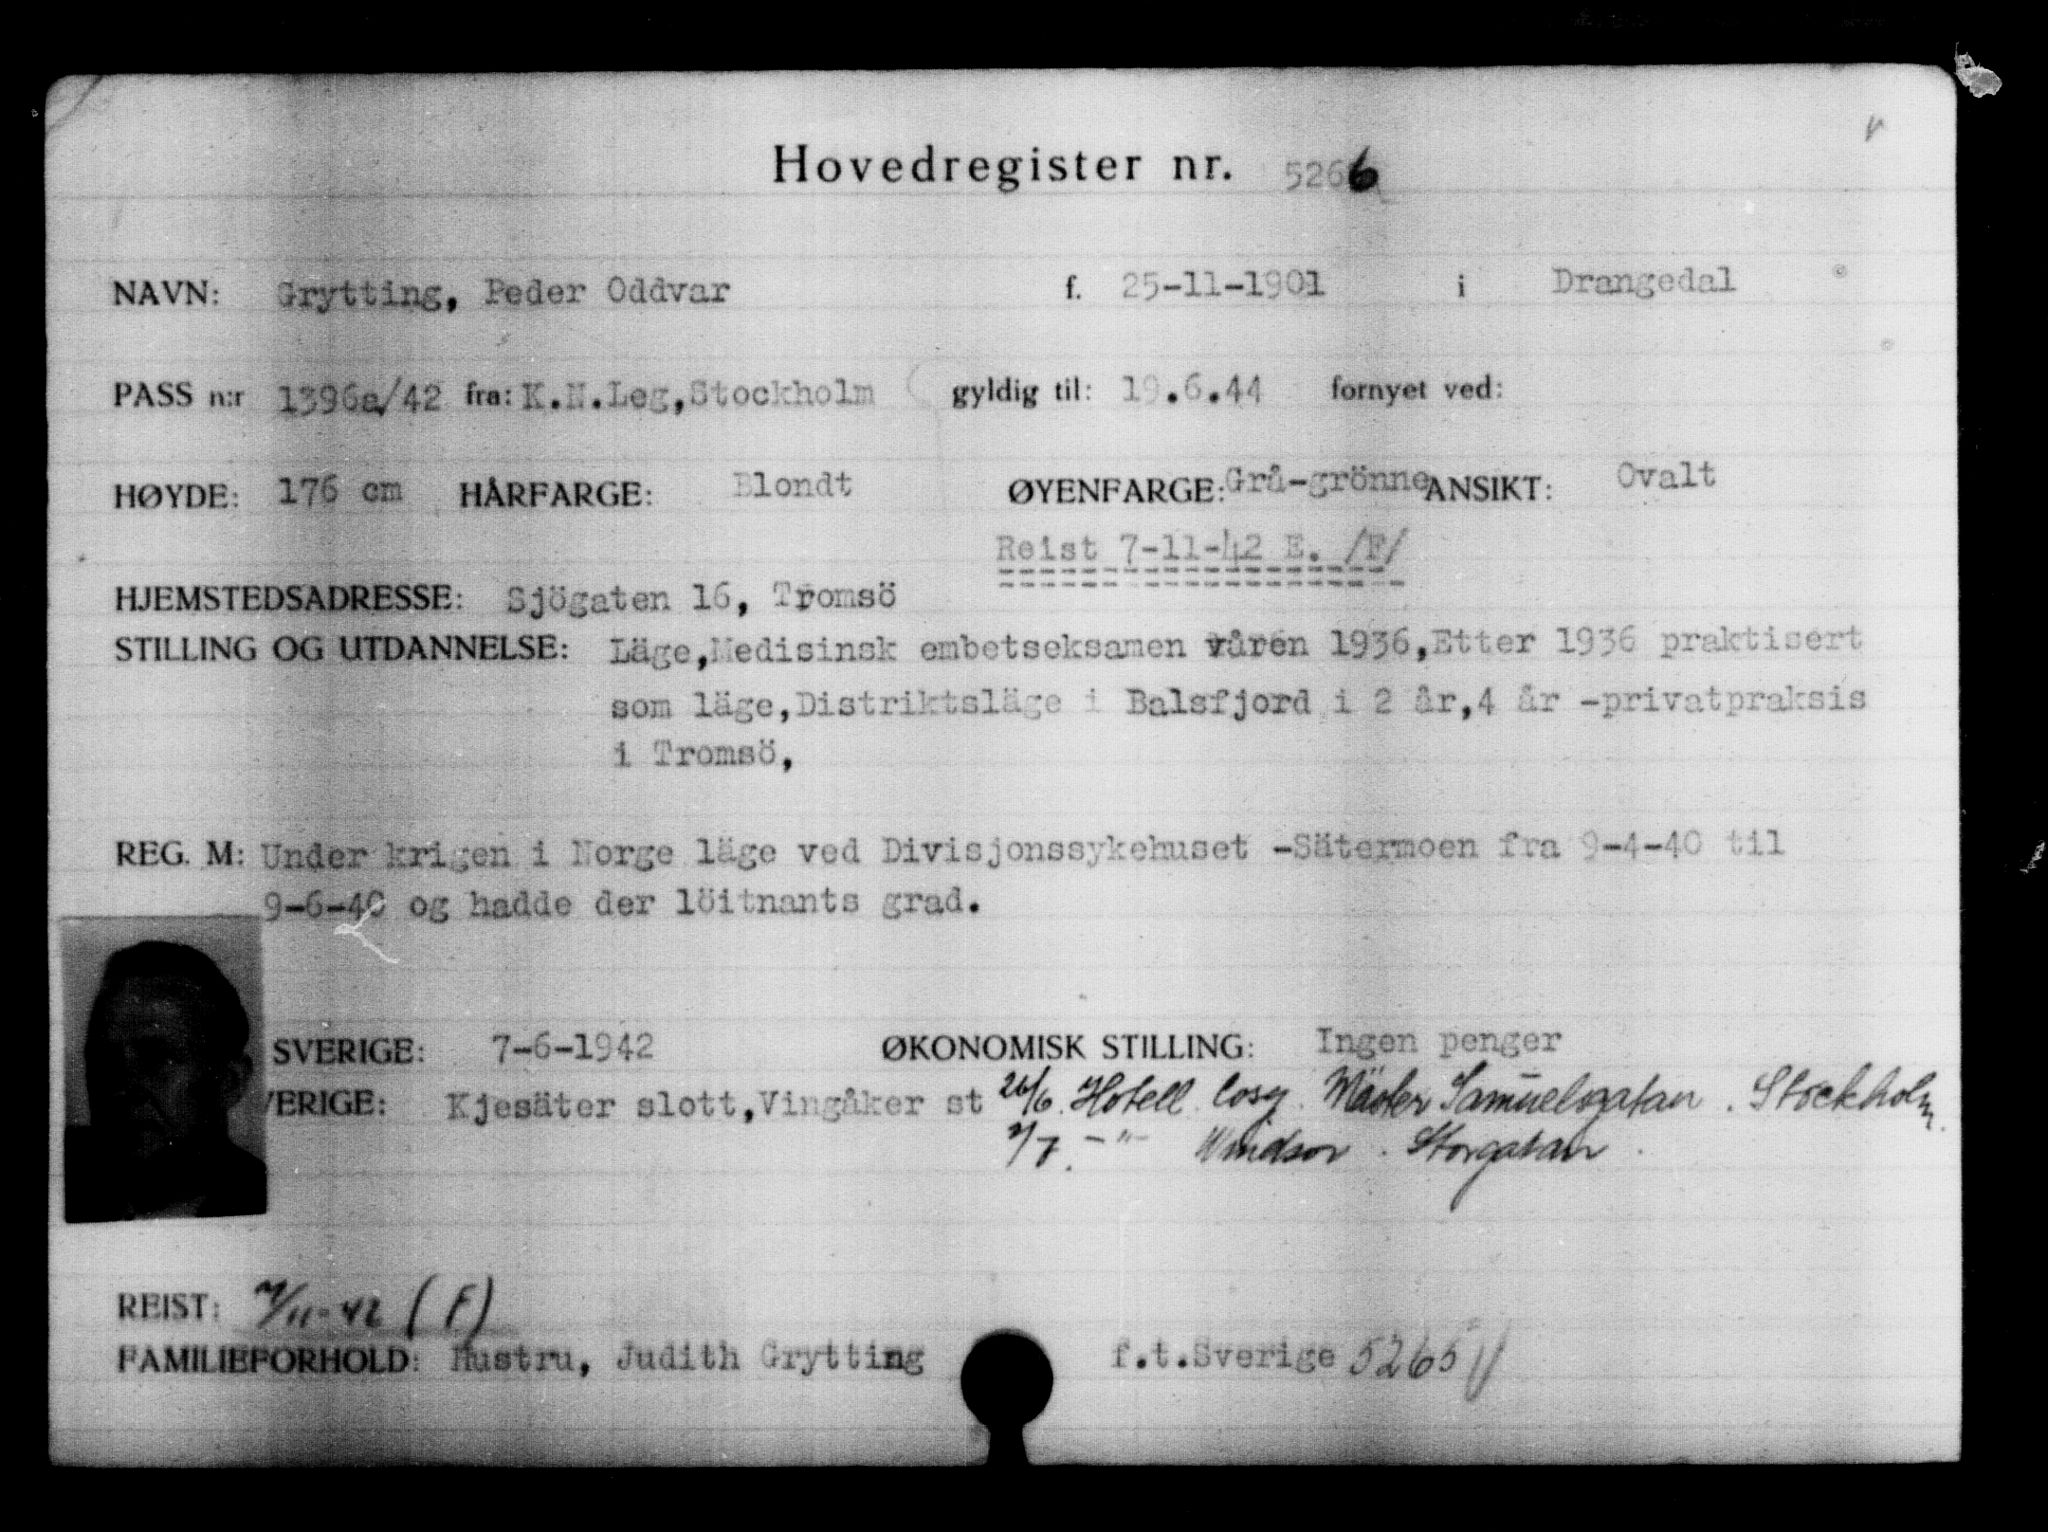 Hovedregister nr. 5266
NAVN: Grytting, Peder Oddvar f. 25-11-1901 i Drangedal
PASS n:r 1396a/42 fra: K.N.Leg,Stockholm gyldig til: 19.6.44 fornyet ved:
HØYDE: 176 cm HÅRFARGE: Blondt ØYENFARGE: Grå-grönne ANSIKT: Ovalt
Reist 7-11-42 E. /F/
HJEMSTEDSADRESSE: Sjögaten 16, Tromsö
STILLING OG UTDANNELSE: Läge,Medisinsk embetseksamen våren 1936,Etter 1936 praktisert
som läge,Distriktsläge i Balsfjord i 2 år,4 år -privatpraksis
i Tromsö,
REG. M: Under krigen i Norge läge ved Divisjonssykehuset -Sätermoen fra 9-4-40 til
9-6-40 og hadde der löitnants grad.
SVERIGE: 7-6-1942 ØKONOMISK STILLING: Ingen penger
VERIGE: Kjesäter slott,Vingåker st 26/6. Hotell Cosy. Mäster Samuelsgatan. Stockholm.
7. -"- Windsor. Storgatan.
REIST: 7/11-42 (F)
FAMILIEFORHOLD: Hustru, Judith Grytting f.t.Sverige 5265